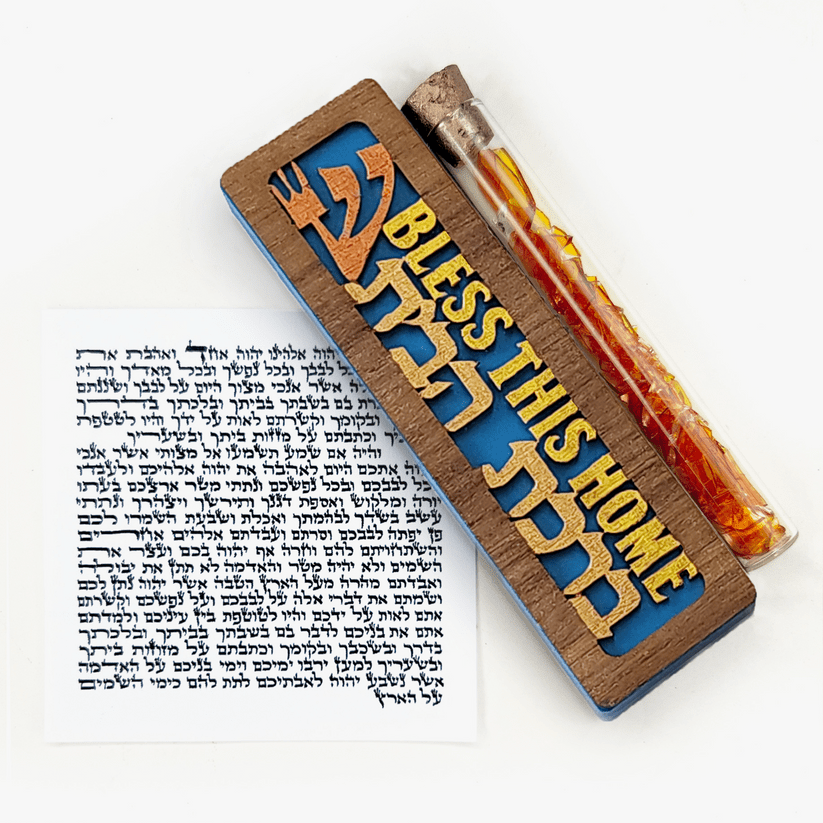 ש
BLESS THIS HOME
ברכת הבית
יהוה אלהינו יהוה אחד ואהבת את
לבבך ובכל נפשך ובכל מאדך והיו
אשר אנכי מצוך היום על לבבך ושננתם
בם בשבתך בביתך ובלכתך בדרך
ובקומך וקשרתם לאות על ידך והיו לטטפת
וכתבתם על מזזות ביתך ובשעריך
והיה אם שמע תשמעו אל מצותי אשר אנכי
אתכם היום לאהבה את יהוה אלהיכם ולעבדו
בכל לבבכם ובכל נפשכם ונתתי מטר ארצכם בעתו
יורה ומלקוש ואספת דגנך ותירשך ויצהרך ונתתי
עשב בשדך לבהמתך ואכלת ושבעת השמרו לכם
פן יפתה לבבכם וסרתם ועבדתם אלהים אחרים
והשתחויתם להם וחרה אף יהוה בכם ועצר את
השמים ולא יהיה מטר והאדמה לא תתן את יבולה
ואבדתם מהרה מעל הארץ הטבה אשר יהוה נתן לכם
ושמתם את דברי אלה על לבבכם ועל נפשכם וקשרתם
אתם לאות על ידכם והיו לטוטפת בין עיניכם ולמדתם
אתם את בניכם לדבר בם בשבתך בביתך ובלכתך
בדרך ובשכבך ובקומך וכתבתם על מזוזות ביתך
ובשעריך למען ירבו ימיכם וימי בניכם על האדמה
אשר נשבע יהוה לאבתיכם לתת להם כימי השמים
על הארץ